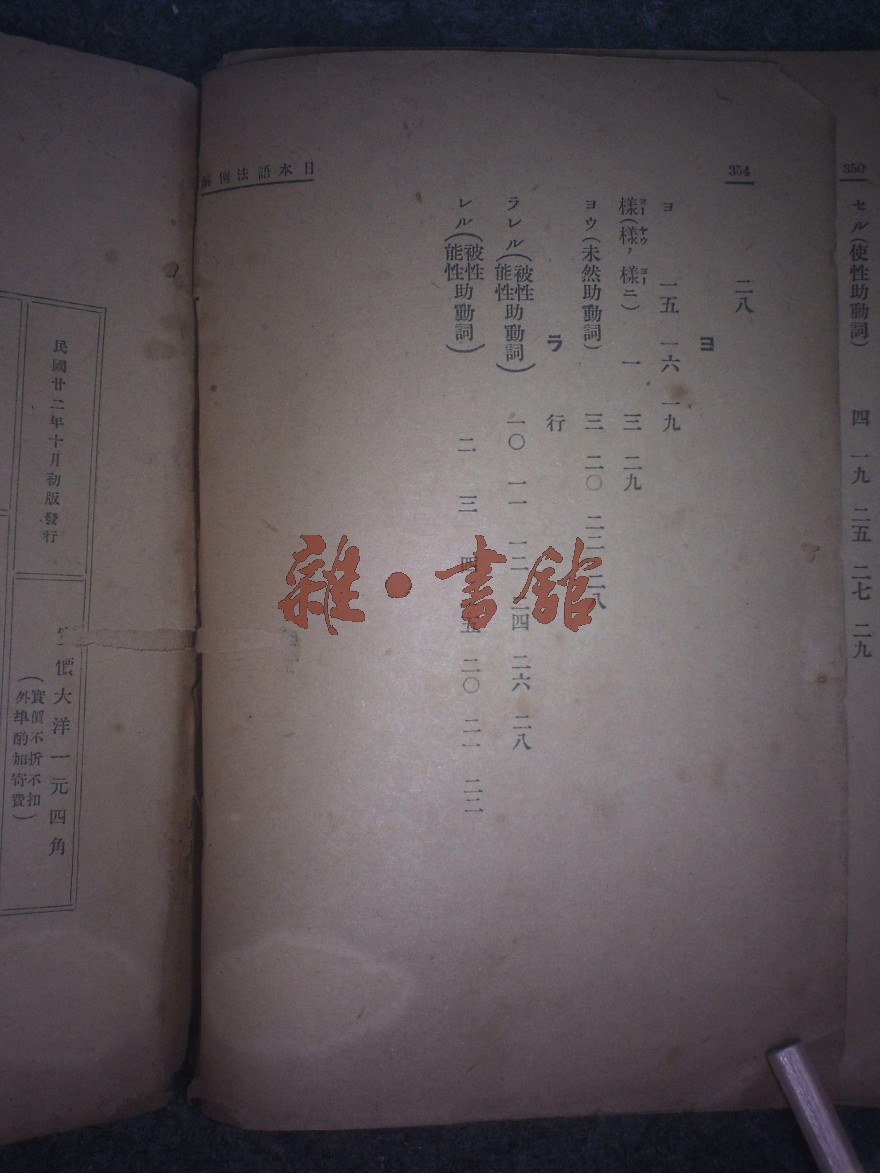 350
セル(使性助動詞) 四 一九 二五 二七 二九
354
日本語法例解
二八
ヨ
ヨ 一五 一六 一九
様(様,様ニ) 一 三 二九
ヨウ(未然助動詞) 三 二〇 二二 二八
ラ 行
ラレル(被性能性助動詞) 一〇 一一 一二 二四 二六 二八
レル(被性能性助動詞) 二 三 四 五 二〇 二一 二二
雜·書館
民國廿二年十月初版發行
價大洋一元四角
(實價不折不扣
外埠酌加寄費)